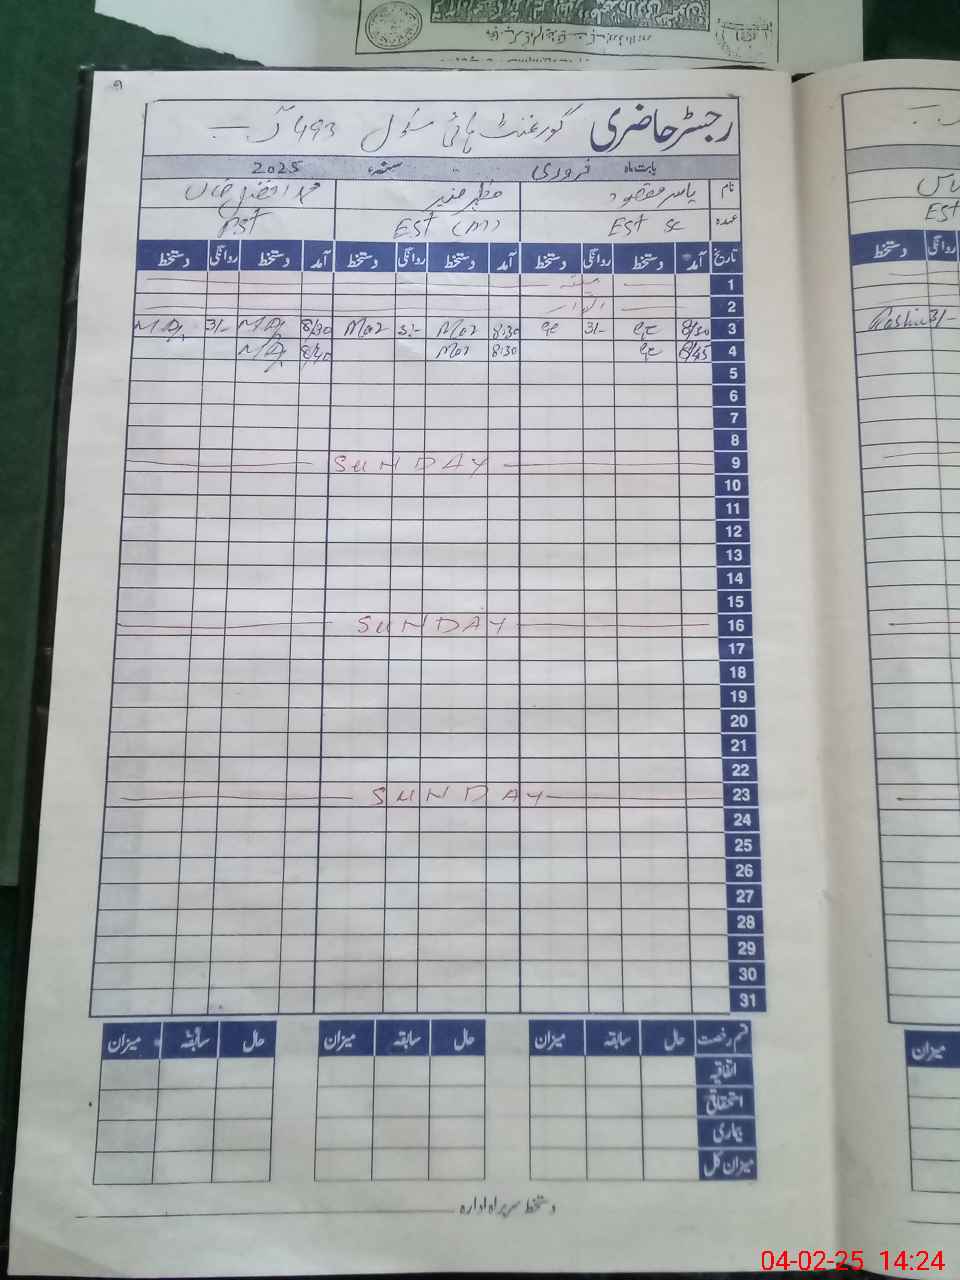 رجسٹر حاضری گورنمنٹ ہائی سکول 493 گ ب
بابت ماہ فروری سنہء 2025
نام یاسر مقصود مظہر منیر محمد افضل خاں
عہدہ EST Sc EST (M) PST
تاریخ آمد دستخط روانگی دستخط آمد دستخط روانگی دستخط آمد دستخط روانگی دستخط
1 ہفتہ
2 اتوار
3 8/30 3/- 8:30 Maz 3/- Maz 8/30 MA 3/- MA
4 8/45 8:30 Maz 8/40 MA
5
6
7
8
9 SUNDAY
10
11
12
13
14
15
16 SUNDAY
17
18
19
20
21
22
23 SUNDAY
24
25
26
27
28
29
30
31
قسم رخصت حال سابقہ میزان حال سابقہ میزان حال سابقہ میزان
اتفاقیہ
استحقاقی
بیماری
میزان کل
دستخط سربراہ ادارہ
EST
دستخط روانگی
Rashid 3/-
میزان
04-02-25 14:24